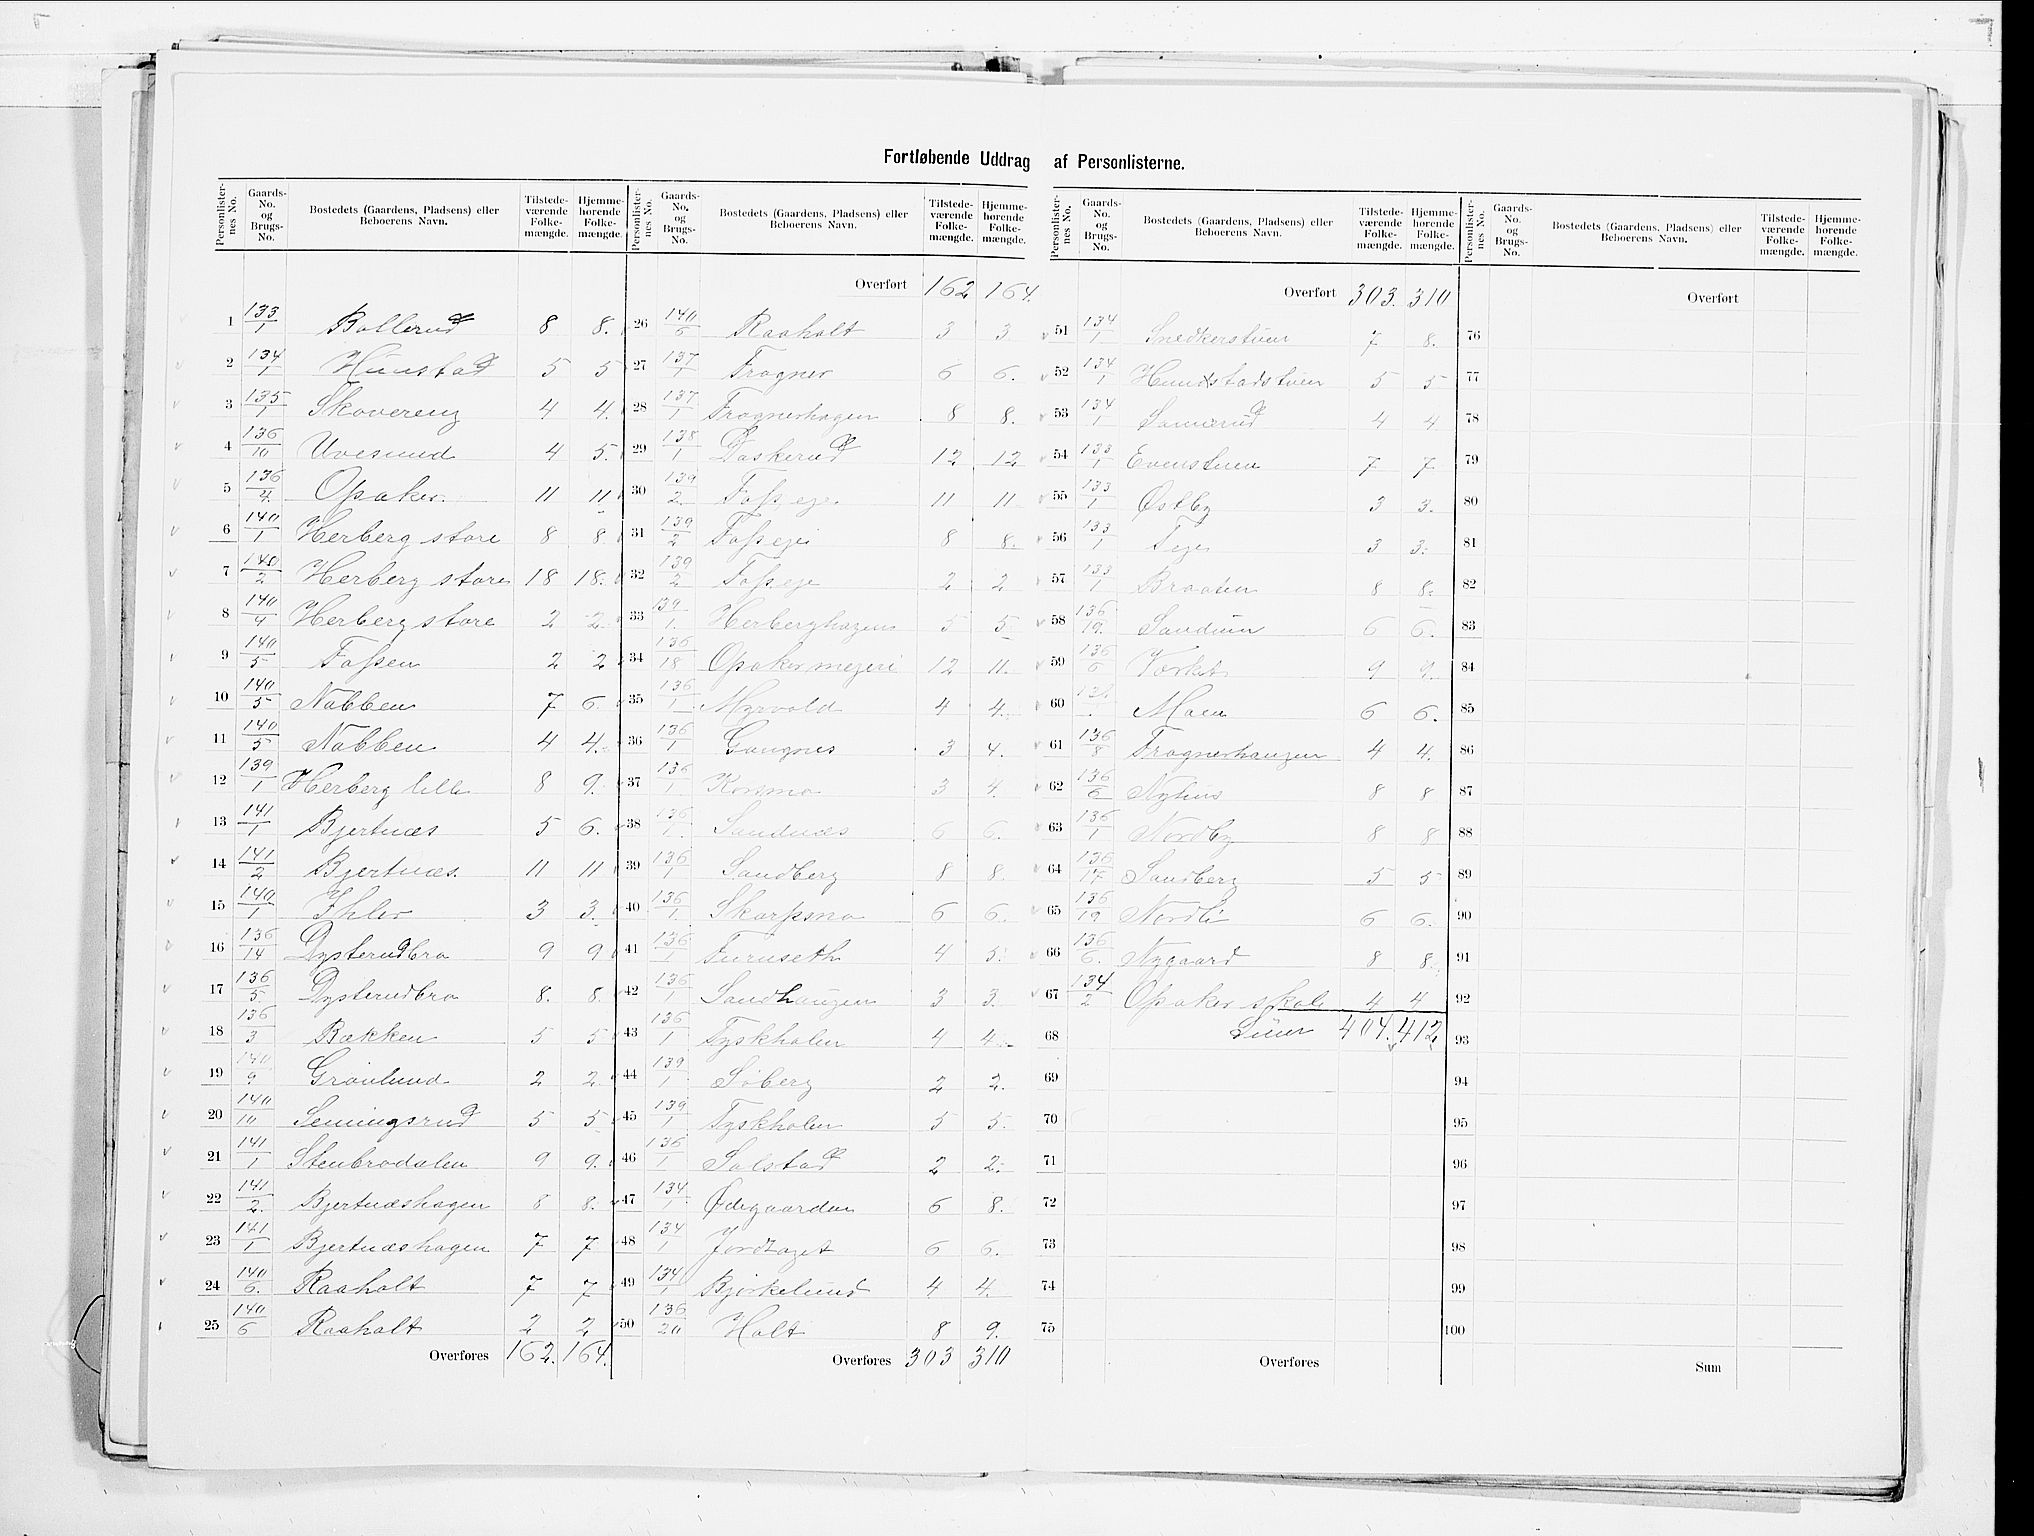 Fortløbende Uddrag af Personlisterne.
Personlister-nes No. Gaards-No. og Brugs-No. Bostedets (Gaardens, Pladsens) eller Beboerens Navn. Tilstede-værende Folke-mængde. Hjemme-hørende Folke-mængde.
1 133/1 Bollerud 8 8.
2 134/1 Hunstad 5 5
3 135/1 Skovereng 4 4.
4 136/10 Uvesund 4 5.
5 136/4. Opaker. 11 11
6 140/1 Herberg store 8 8.
7 140/2 Herberg store 18 18.
8 140/4 Herberg store 2 2.
9 140/5 Fossen 2 2
10 140/5 Nabben 7 6.
11 140/5 Nabben 4 4.
12 139/1 Herberg lille 8 9.
13 141/1 Bjertnæs 5 6.
14 141/2 Bjertnæs. 11 11
15 140/1 Ihler 3 3.
16 136/14 Dysterudbro 9 9
17 136/5. Dysterudbro 8. 8.
18 136/3 Bækken 5 5
19 140/9 Grønlund 2 2
20 140/10 Semingsrud 5 5
21 141/1 Stenbrodalen 9 9.
22 141/2. Bjertnæshagen 8 8.
23 141/1 Bjertnæshagen 7 7
24 140/6. Raaholt 7 7
25 140/6 Raaholt 2 2
Overføres 162. 164.
Personlister-nes No. Gaards-No. og Brugs-No. Bostedets (Gaardens, Pladsens) eller Beboerens Navn. Tilstede-værende Folke-mængde. Hjemme-hørende Folke-mængde.
Overført 162 164.
26 140/6 Raaholt 3 3.
27 137/1 Frogner 6 6.
28 137/1 Frognerhagen 8 8.
29 138/1 Daskerud 12 12
30 139/2 Foss, eje 11 11.
31 139/2 Fosseje 8 8.
32 139/2 Fosseje 2 2
33 139/1. Herberghagen 5 5
34 136/18 Opaker mejeri 12 11.
35 136/1 Myrvold 4 4.
36 136/1 Gangnes 3 4.
37 136/1 Korsmo 3 4.
38 136/1. Sandnæs 6 6.
39 136/1 Sandberg 8 8.
40 136/1. Skarpsno 6 6.
41 136/1 Furuseth 4 5.
42 136/1 Sandhaugen 3 3.
43 136/1 Tyskholen 4 4.
44 139/1. Söberg 2 2.
45 139/1 Tyskholen 5 5.
46 136/1 Solstad 2 2.
47 134/1. Ødegaarden 6 8.
48 134/1 Jordtaget 6 6.
49 134/1 Bjørkelund 4 4.
50 136/20 Holt 8 9.
Overføres 303 310
Personlister-nes No. Gaards-No. og Brugs-No. Bostedets (Gaardens, Pladsens) eller Beboerens Navn. Tilstede-værende Folke-mængde. Hjemme-hørende Folke-mængde.
Overført 303. 310
51 134/1 Snedkerstuen 7 8.
52 134/1 Hundstadstuen 5 5
53 134/1 4 4
54 133/1 Evenstuen 7 7.
55 133/1 Østby 3 3.
56 133/1 3 3.
57 133/1 Braaten 8 8.
58 136/19. Sandum 6 6.
59 136/6 Værket 9 9.
60 Moen 6 6.
61 136/8 Frognerhaugen 4 4.
62 136/6 Nyhus 8 8
63 136/1 Nordby 8 8
64 136/17 Sandberg 5 5
65 136/19 Nordli 6 6.
66 136/6. Nygaard 8 8.
67 134/2 Opaker skole 4 4
68 Suum 404. 412.
69
70
71
72
73
74
75
Overføres
Personlister-nes No. Gaards-No. og Brugs-No. Bostedets (Gaardens, Pladsens) eller Beboerens Navn. Tilstede-værende Folke-mængde. Hjemme-hørende Folke-mængde.
Overført
76
77
78
79
80
81
82
83
84
85
86
87
88
89
90
91
92
93
94
95
96
97
98
99
100
Sum